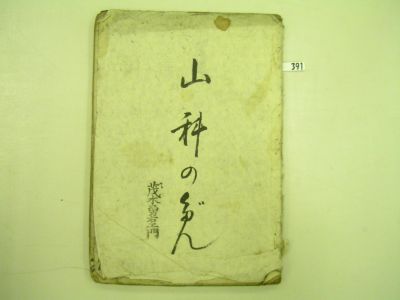 391
山科のだん
茂木